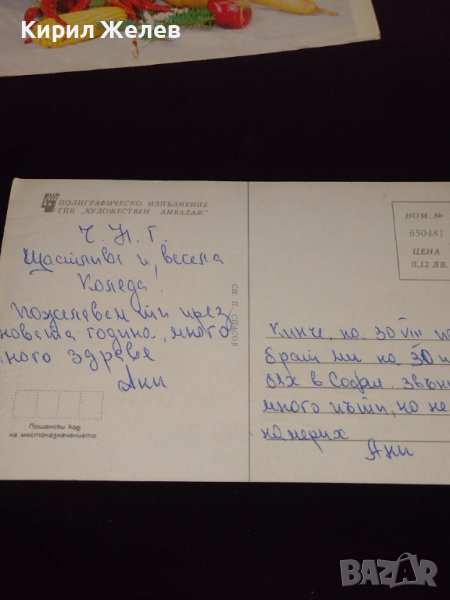 Кирил Желев
ПОЛИГРАФИЧЕСКО ИЗПЪЛНЕНИЕ
ТПК „ХУДОЖЕСТВЕН АМБАЛАЖ"
Ч. Н. Г.
Щастлива и весела
Коледа!
Пожелавам ти през
новата година, много
много здраве
Ани
Пощенски код
на местоназначението
СН. П. СПАСОВ
НОМ. №
650481
ЦЕНА
0,12 ЛВ.
Кинче, на 30 VIII
брат ми на 30
бях в София. Звън
много пъти, но не
намерих
Ани
BAZAR